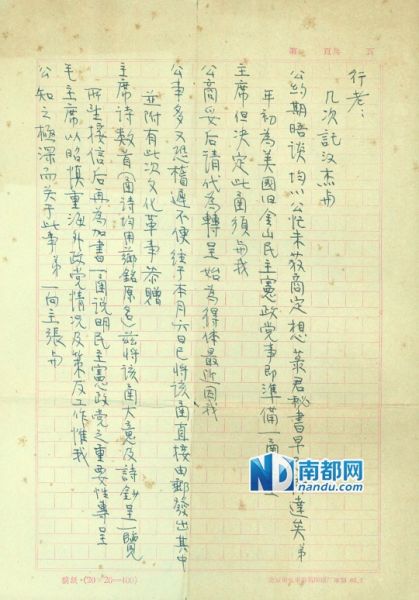 第 頁共 頁
行老：
几次託汉杰与
公約期晤谈均以公忙未敢商定想 君秘書早 達矣弟
年初為美國旧金山民主憲政党事即準備一函
主席但决定此函須与我
公商妥后清代為轉呈始為得体最近因我
公事多又恐稽遲不便徒于本月六日已将该函直接由郵發出其中
並附有此次文化革事恭贈
主席诗数首（函诗均用 銘原名）兹将该函大意及詩鈔呈一覽
再生接信后再為加書一函说明民主憲政党之重要性專呈
毛主席以昭慎重海外政党情况及策反工作惟我
公知之極深而关于此事弟一向主張与
ND 南都网
nandu.com
稿紙·(20×20=400)